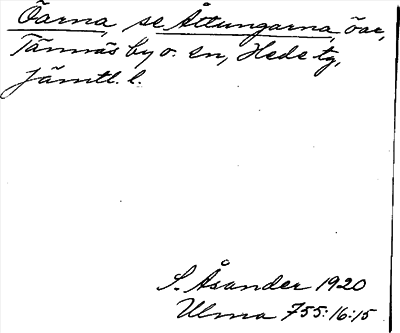 Öarna, se Åttungarna, öar,
Tännäs by o. sn, Hede tg,
Jämtl. l.
S. Åsander 1920
Ulma 755:16:15